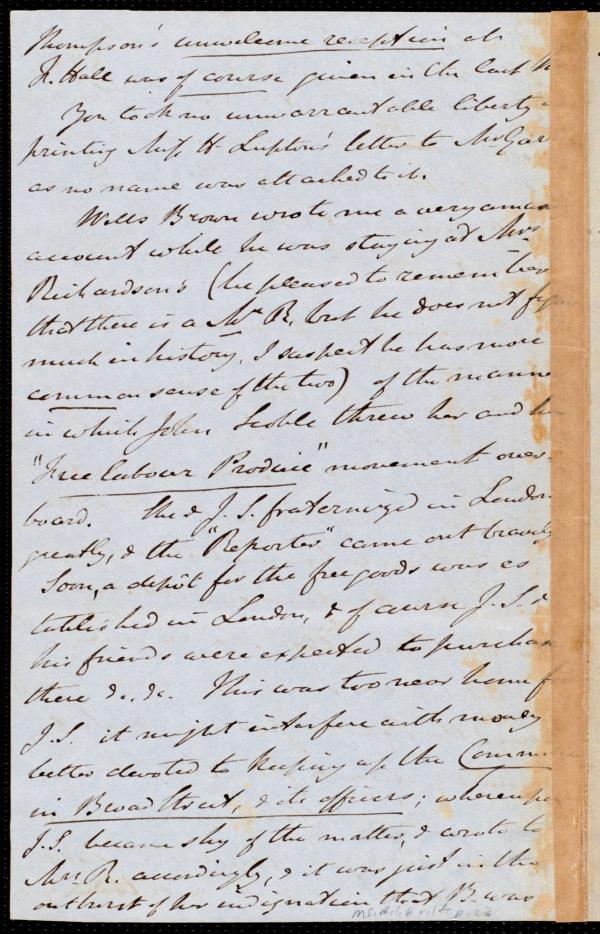 Thompson's unwelcome reception at
F. Hall was of course given in the last
You took no unwarrantable liberty
printing Miss H Lupton's letter to Mr Gar
as no name was attached to it.
Wells Brown wrote me a very amus
account while he was staying at Mrs
Richardson's (be pleased to remember
that there is a Mr R. but he does not
much in history, I suspect he has more
common sense of the two) of the manne
in which John Scoble threw her and
"Free labour Produce" movement over-
board. She & J.S. fraternized in London
greatly, & the "Reporter" came out bravely
Soon, a depôt for the free goods was es
tablished in London, & of course J.S. &
his friends were expected to purchase
there &c. &c. This was too near home
J.S. it might interfere with money
better devoted to keeping up the Comm
in Broad Street, & its officers; whereupon
J.S. became shy of the matter, & wrote to
Mrs R. accordingly, & it was just in the
outburst of her indignation that B. was